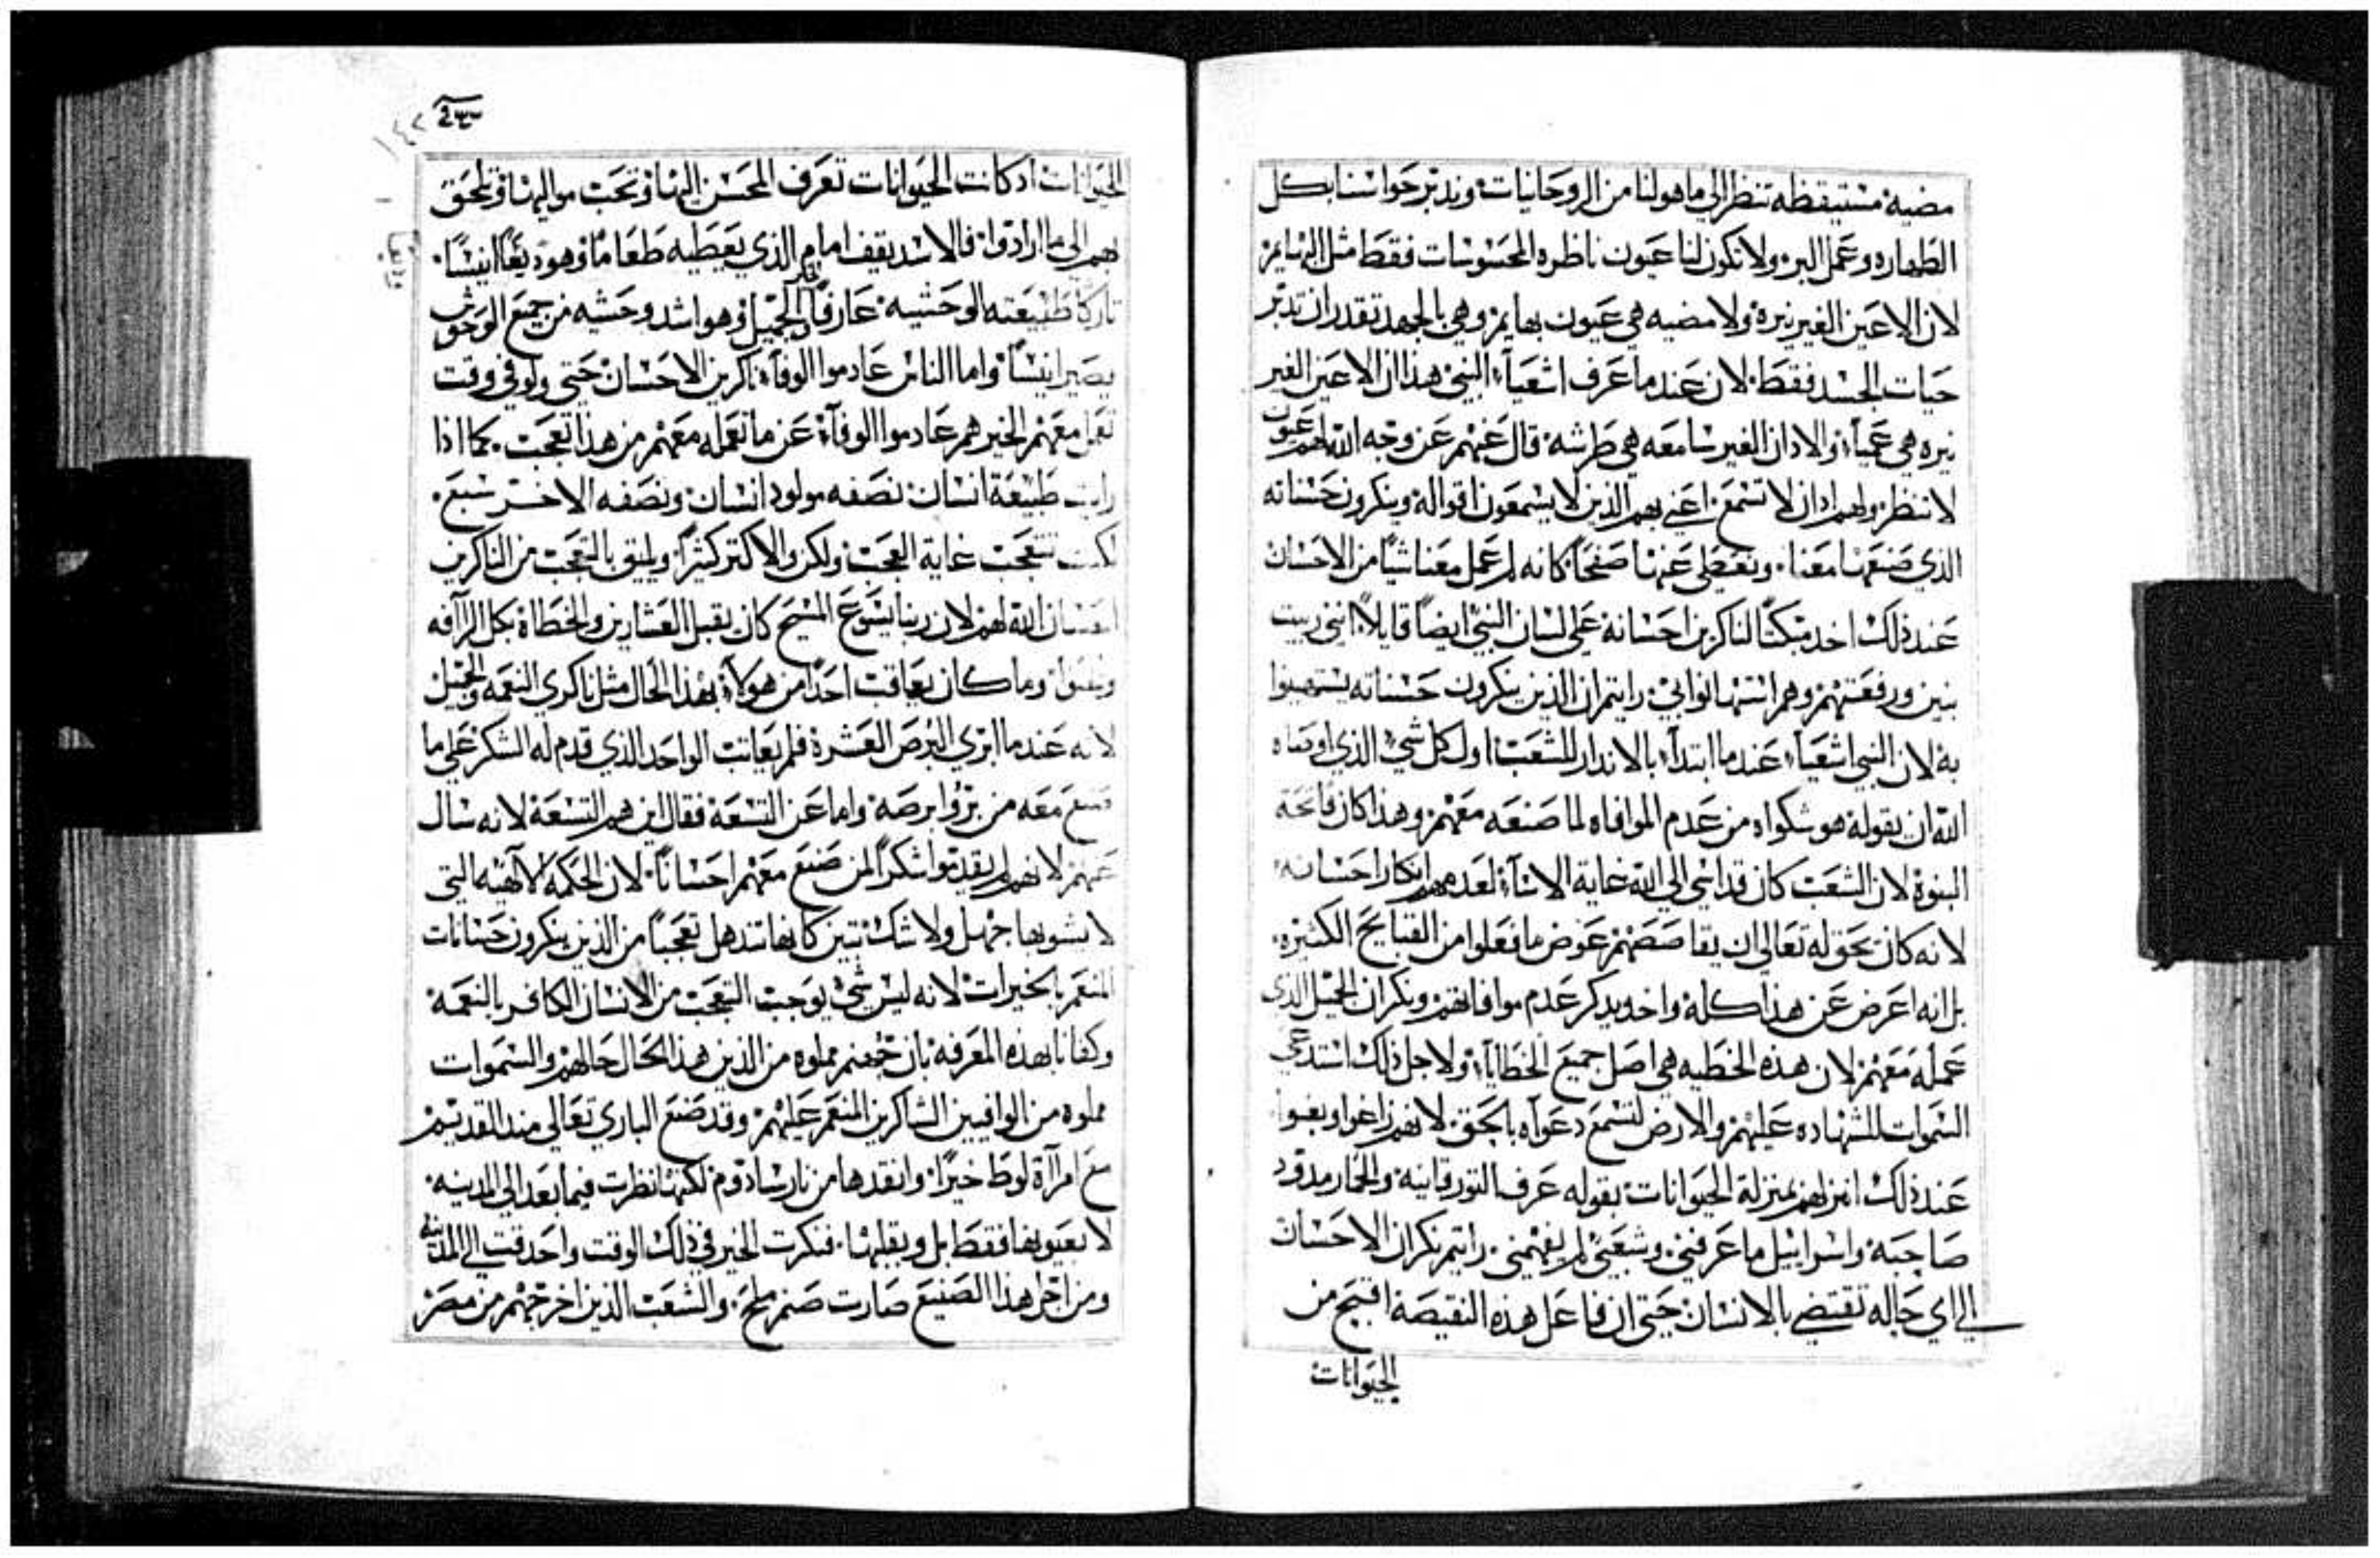 مضيه مستيقظه تنظر الي ماهو لنا من الروحانيات وندبر حواسنا بكل
الطهاره وعمل البر ولا تكون لنا عيون ناظره المحسوسات فقط مثل البهايم
لان الاعين الغير نيره ولا مضيه هي عيون بهايم وهي بالجهد تقدر ان تدبر
حيات الجسد فقط لان عند ما عرف اشعياء النبي هذا ان الاعين الغير
نيره هي عمياء والادان الغير سامعه هي طرشه قال عنهم عن وجه الله لهم عيون
لا تنظر ولهم ادان لا تسمع اعني بهم الذين لا يسمعون اقواله وينكرون حسناته
الذي صنعها معنا ونعطي عنها صفحًا كانه لم عمل معنا شيًا من الاحسان
عند ذلك اخد مبكتًا لناكرين احسانه علي لسان النبي ايضًا قايلاً انني ربيت
بنين ورفعتهم وهم استهانوا بي رايتم ان الذين ينكرون حسناته يستهينوا
به لان النبي اشعياء عند ما ابتداء بالاندار للشعب اول كل شي الذي اوصاه
الله ان يقوله هو شكواه من عدم الموافاه لما صنعه معهم وهذا كان فاتحة
النبوة لان الشعب كان قد اتي الي الله غاية الاساءة لعدمهم انكار احسانه
لانه كان يحق له تعالي ان يقاصصهم عوض ما فعلوا من القبايح الكثيره
بل انه اعرض عن هذا كله واخد يدكر عدم موافاتهم ونكران الجميل الذي
عمله معهم لان هذه الخطيه هي اصل جميع الخطايا ولاجل ذلك استدعي
السموات للشهاده عليهم والارض لتسمع دعواه بالحق لانهم زاغوا وبغوا
عند ذلك انزلهم بمنزلة الحيوانات بقوله عرف التور قانيه والحمار مدود
صاحبه واسراييل ما عرفني وشعبي لم يفهمني رايتم نكران الاحسان
الي اي حاله تقتضي بالانسان حتي ان فاعل هذه النقيصة اقبح من
الحيوانات
الحيوانات اد كانت الحيوانات تعرف المحسن اليها وتحب مواليها وتلحق
بهم الي ما ارادوا فالاسد يقف امام الذي يعطيه طعامًا وهو انيسًا
تاركًا طبيعته الوحشيه عارفًا الجميل وهو اشد وحشيه من جميع الوحوش
يصير انيسًا واما الناس عادموا الوفاء ناكرين الاحسان حتي ولو في وقت
تعمل معهم الخير هم عادموا الوفاء عن ما تعمله معهم من هذا تعجب كما اذا
رايت طبيعة انسان نصفه مولود انسان ونصفه الاخر سبع
لكنت تتعجب غاية العجب ولكن والاكتر كثيرًا ويليق بالتعجب من الناكرين
احسان الله لهم لان ربنا يسوع المسيح كان يقبل العشارين والخطاة بكل الرآفه
وما كان يعاقب احدًا من هولاء بهذا الحال مثل ناكري النعمه والجميل
لانه عند ما ابري البرص العشرة فلم يعاتب الواحد الذي قدم له الشكر علي ما
صنع معه من برؤ ابرصه واما عن التسعة فقال اين هم التسعة لانه سال
عنهم لانهم لم يقدموا شكرًا لمن صنع معهم احسانًا لان الحكمه الالهيه التي
لا يشوبها جهل ولا شك تبين كانها تندهل تعجبًا من الذين ينكرون حسنات
المنعم بالخيرات لانه ليس شي يوجب التعجب من الانسان الكافر بالنعمة
وكفانا بهذه المعرفه بان جهنم مملوه من الذين هذا الحال حالهم والسموات
مملوه من الوافيين الشاكرين المنعم عليهم وقد صنع الباري تعالي مند القديم
مع امرآة لوط خيرًا وانقدها من نار سادوم لكنها نظرت فيما بعد الي المدينه
لا بعيونها فقط بل وبقلبها فنكرت الخير في ذلك الوقت واحدقت الي المدينه
ومن اجل هذا الصنيع صارت صنم ملح والشعب الذين اخرجهم من مصر